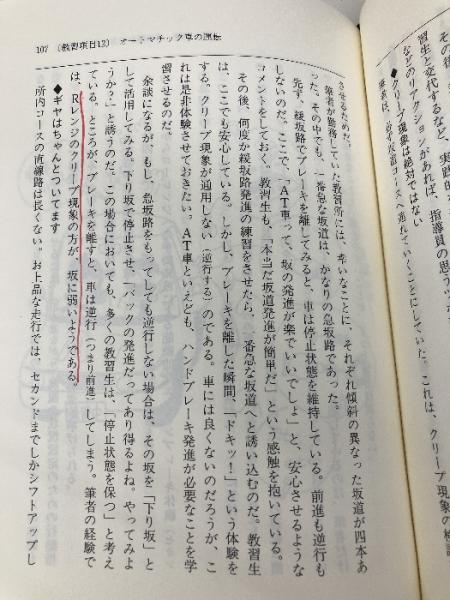 107 （教習項目12） オートマチック車の運転
させるためだ。
筆者が勤務していた教習所には、幸いなことに、それぞれ傾斜の異なった坂道が四本あ
った。その中でも、一番急な坂道は、かなりの急坂路であった。
先ず、緩坂路でブレーキを離してみると、車は停止状態を維持している。前進も逆行も
しないのだ。ここで、「ＡＴ車って、坂の発進が楽でいいでしょ」と、安心させるような
コメントをしておく。教習生も、「本当だ坂道発進が簡単だ」という感触を抱いている。
その後、何度か緩坂路発進の練習をさせたら、一番急な坂道へと誘い込むのだ。教習生
は、ここでも安心している。しかし、ブレーキを離した瞬間、「ドキッ！」という体験を
する。クリープ現象が通用しない（逆行する）のである。車には良くないのだろうが、こ
れは是非体験させておきたい。ＡＴ車といえども、ハンドブレーキ発進が必要なことを学
習させるのだ。
余談になるが、もし、急坂路をもってしても逆行しない場合は、その坂を「下り坂」と
して活用してみる。下り坂で停止させ、「バックの発進だってあり得るよね。やってみよ
うか？」と誘うのだ。この場合においても、多くの教習生は、「停止状態を保つ」と考え
ている。ところが、ブレーキを離すと、車は逆行（つまり前進）してしまう。筆者の経験で
は、Ｒレンジのクリープ現象の方が、坂に弱いようである。
◆ギヤはちゃんとついてます
所内コースの直線路は長くない。お上品な走行では、セカンドまでしかシフトアップし